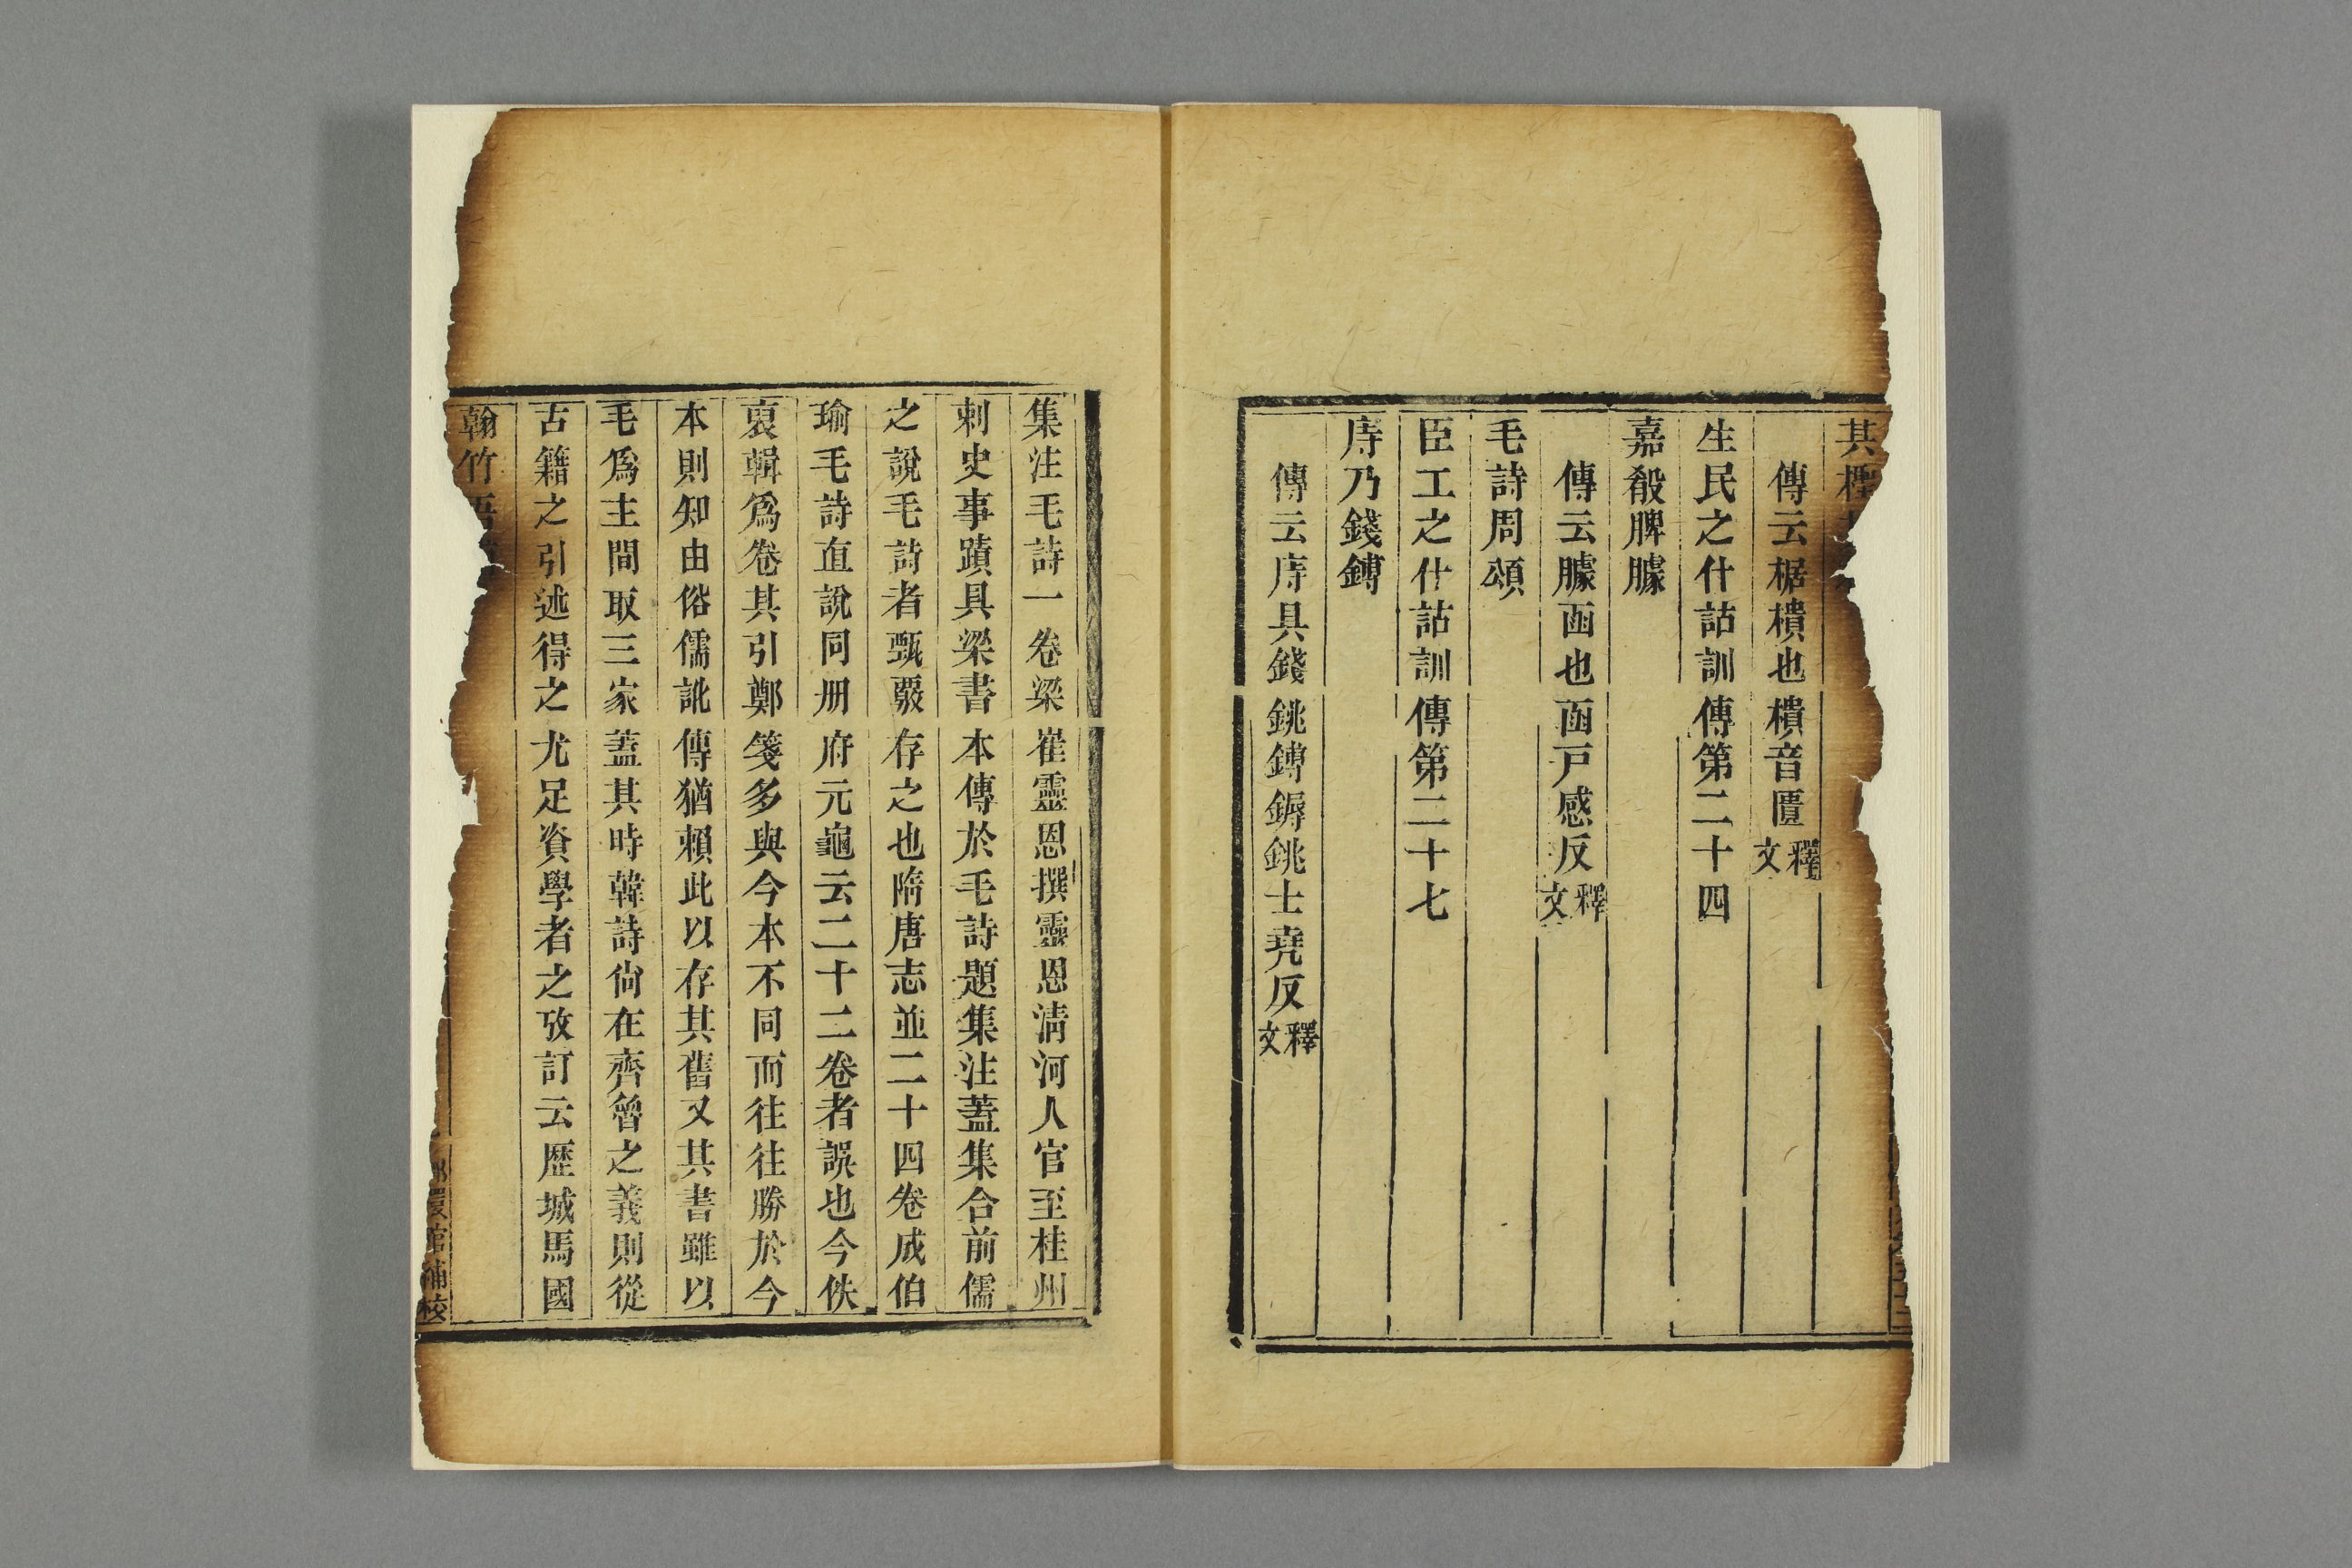 其檉
傳云椐樻也樻音匱釋文
生民之什詁訓傳第二十四
嘉殽脾臄
傳云臄函也函戸感反釋文
毛詩周頌
臣工之什詁訓傳第二十七
庤乃錢鎛
傳云庤具錢銚鎛鎒銚士堯反釋文
集注毛詩一卷梁崔靈恩撰靈恩淸河人官至桂州
刺史事蹟具梁書本傳於毛詩題集注蓋集合前儒
之說毛詩者甄覈存之也隋唐志並二十四卷成伯
瑜毛詩直說同册府元龜云二十二卷者誤也今佚
裒輯爲卷其引鄭箋多與今本不同而往往勝於今
本則知由俗儒訛傳猶賴此以存其舊又其書雖以
毛爲主間取三家蓋其時韓詩尙在齊魯之義則從
古籍之引述得之尤足資學者之攷訂云歷城馬國
翰竹吾
嬛館補校